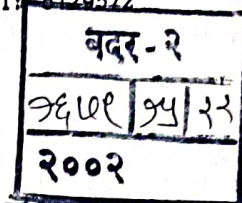 बदर - २
१६५९ | १५ | २२
२००२